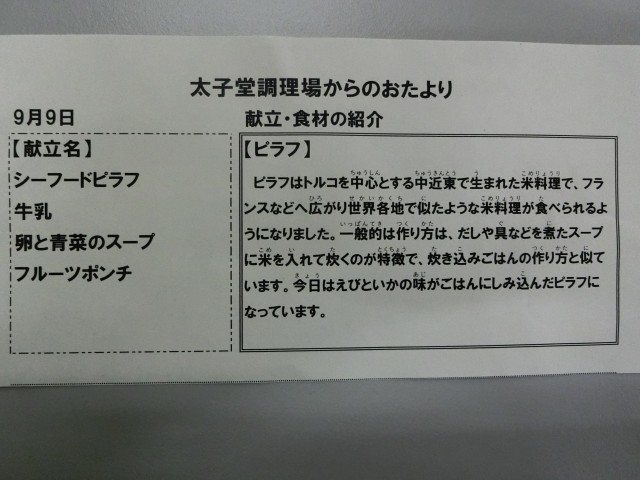 太子堂調理場からのおたより
9月9日
献立・食材の紹介
【献立名】
シーフードピラフ
牛乳
卵と青菜のスープ
フルーツポンチ
【ピラフ】
ピラフはトルコを中心とする中近東で生まれた米料理で、フラ
ンスなどへ広がり世界各地で似たような米料理が食べられるよ
うになりました。一般的は作り方は、だしや具などを煮たスープ
に米を入れて炊くのが特徴で、炊き込みごはんの作り方と似て
います。今日はえびといかの味がごはんにしみ込んだピラフに
なっています。